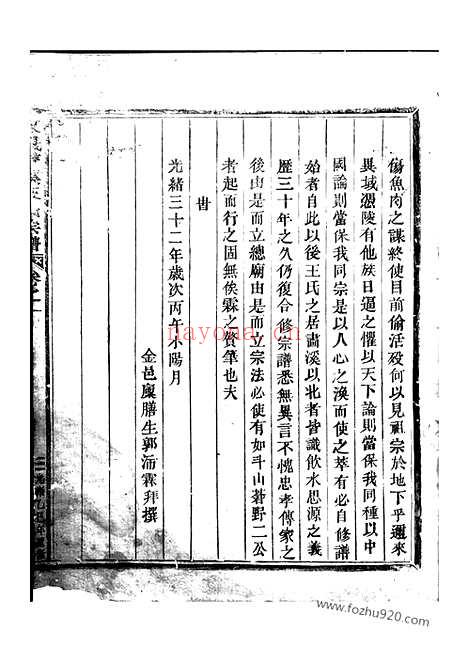 傷魚肉之謀終使目前偷活殁何以見祖宗於地下乎邇來
異域憑陵有他族日逼之懼以天下論則當保我同種以中
國論則當保我同宗是以人心之渙而使之萃有必自修譜
始者自此以後王氏之居肅溪以北者皆識飲水思源之義
歷三十年之久仍復合修宗譜悉無異言不愧忠孝傳家之
後由是而立總廟由是而立宗法必使有如斗山蒼野二公
者起而行之固無俟霖之贅筆也夫
旹
光緒三十二年歲次丙午小陽月
金邑廩膳生郭沛霖拜撰
宗譜
卷之一
nayona.cn
www.fozhu920.com